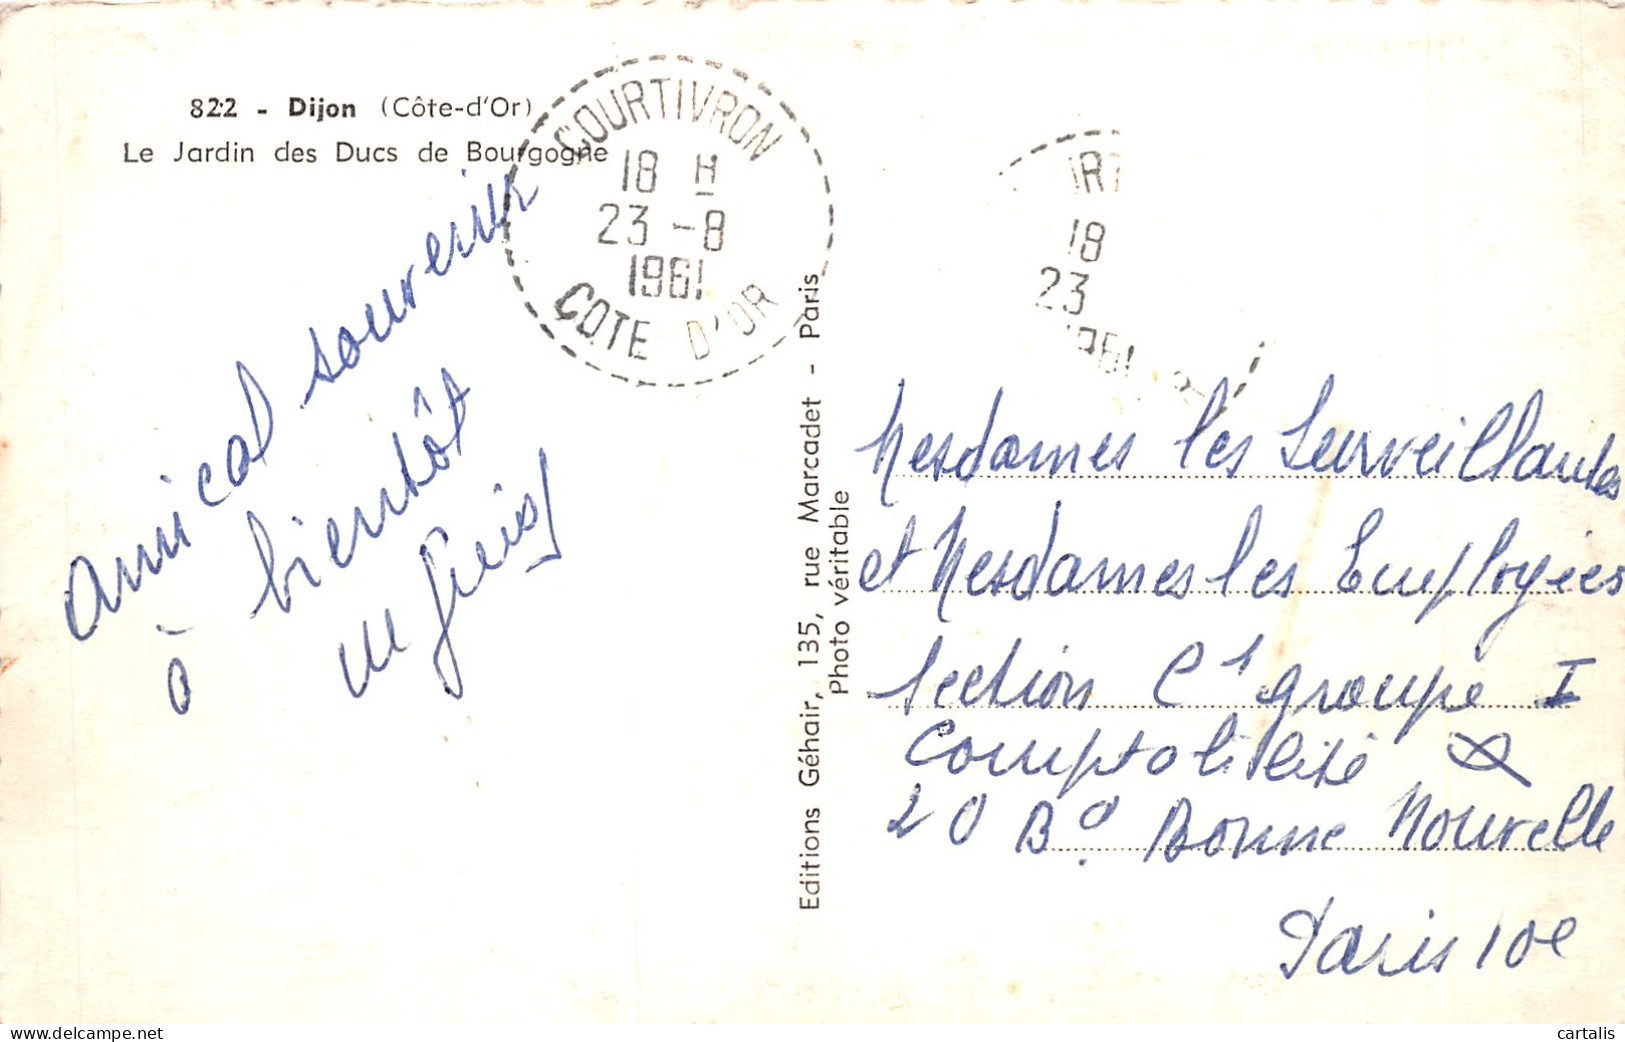 822 - Dijon (Côte-d'Or)
Le Jardin des Ducs de Bourgogne
COURTIVRON
18 H
23 -8
1961
COTE D'OR
18
23
1961
Amical souvenir
à bientôt
Editions Géhair, 135, rue Marcadet - Paris
Photo véritable
Mesdames les Surveillantes
et Mesdames les Employées
Section C1 groupe I
Comptabilité
20 Bd. Bonne Nouvelle
Paris 10e
cartalis